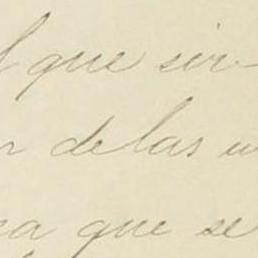 que sir
delas
que se